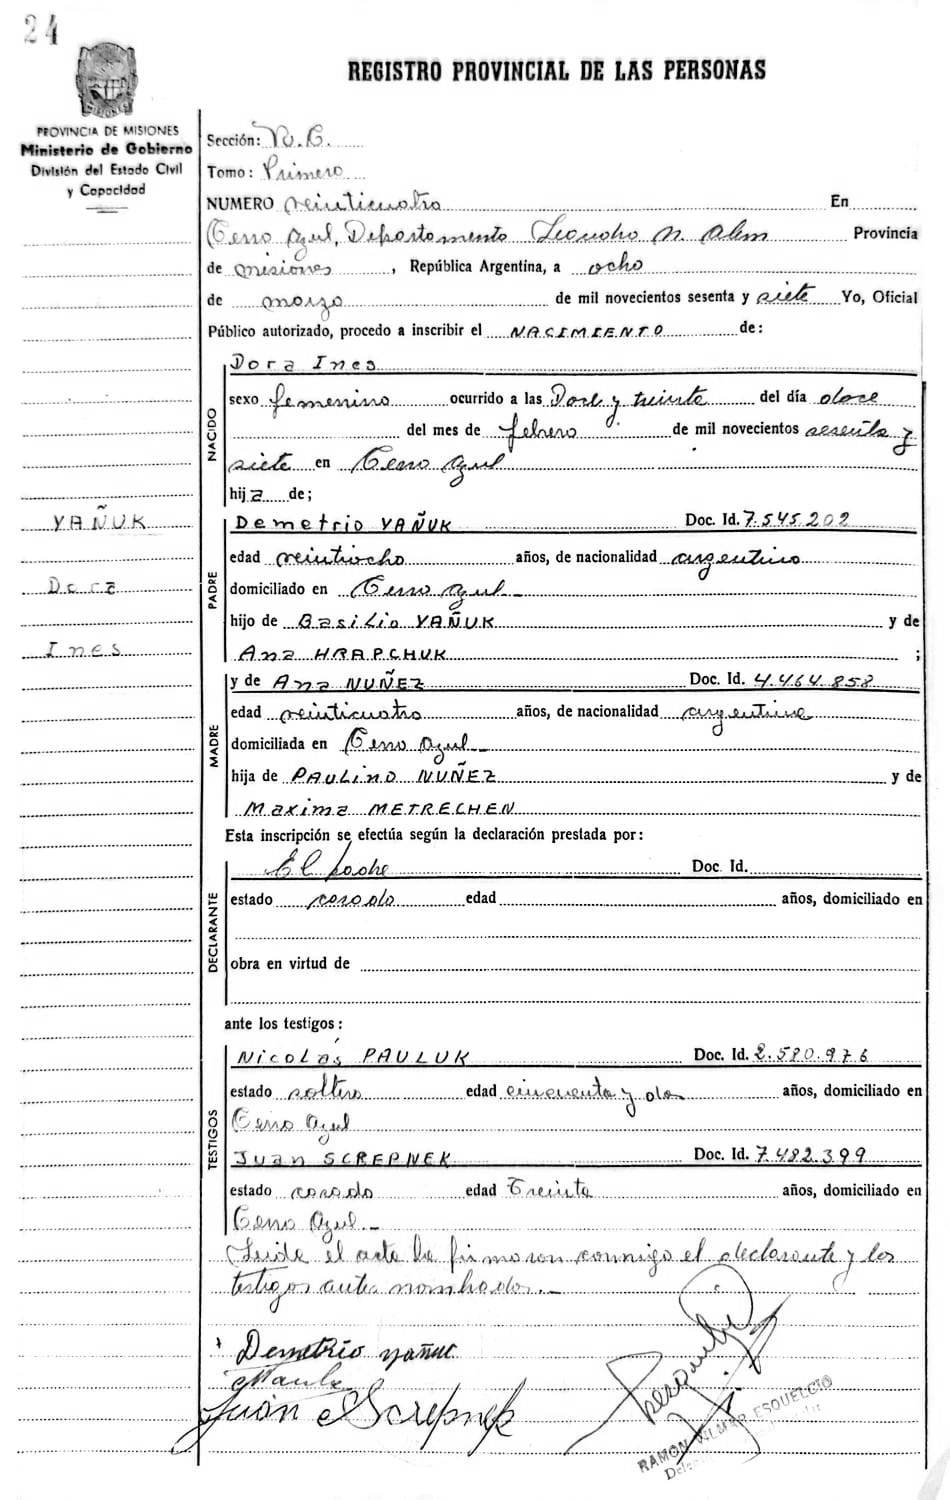 24
REGISTRO PROVINCIAL DE LAS PERSONAS
PROVINCIA DE MISIONES
Ministerio de Gobierno
División del Estado Civil
y Capacidad
Sección: N.C.
Tomo: Primero
NUMERO veinticuatro En
Cerro Azul, Departamento Leandro N. Alem Provincia
de misiones, República Argentina, a ocho
de marzo de mil novecientos sesenta y siete Yo, Oficial
Público autorizado, procedo a inscribir el NACIMIENTO de:
NACIDO
Dora Ines
sexo femenino ocurrido a las Doce y treinta del día doce
del mes de febrero de mil novecientos sesenta y
siete en Cerro Azul
hija de;
YAÑUK
Dora
Ines
PADRE
Demetrio YAÑUK Doc. Id. 7.545.202
edad veintiocho años, de nacionalidad argentino
domiciliado en Cerro Azul
hijo de Basilio YAÑUK y de
Ana HRAPCHUK ;
MADRE
y de Ana NUÑEZ Doc. Id. 4.464.858
edad veinticuatro años, de nacionalidad argentina
domiciliada en Cerro Azul
hija de PAULINO NUÑEZ y de
Maxima METRECHEN
Esta inscripción se efectúa según la declaración prestada por:
DECLARANTE
El padre Doc. Id.
estado casado edad años, domiciliado en
obra en virtud de
ante los testigos:
TESTIGOS
Nicolás PAULUK Doc. Id. 2.580.976
estado soltero edad cincuenta y dos años, domiciliado en
Cerro Azul
Juan SCREPNEK Doc. Id. 7.482.399
estado casado edad Treinta años, domiciliado en
Cerro Azul.-
Leida el acta la firmaron conmigo el declarante y los
testigos antes nombrados.-
Demetrio yañuc
Juan Screpnek
RAMON ESQUELCIO